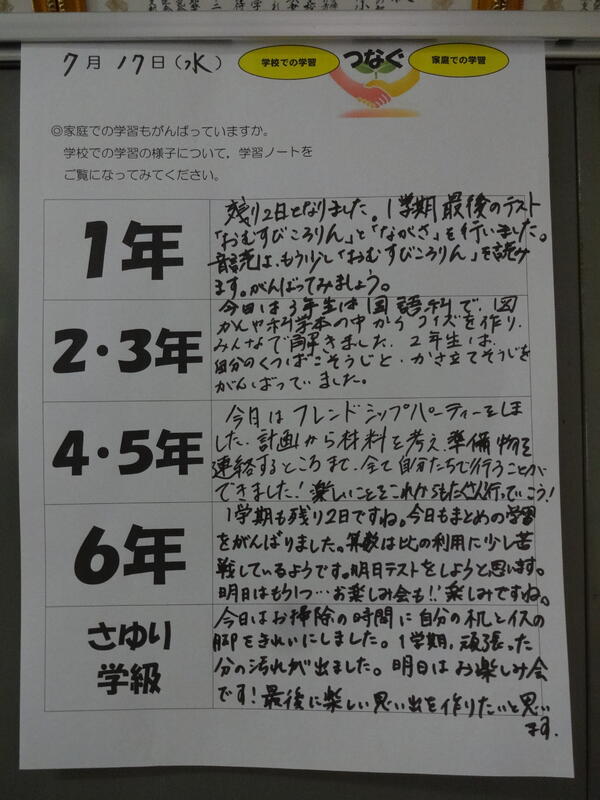 7月17日(水)
学校での学習
つなぐ
家庭での学習
◎家庭での学習もがんばっていますか。
学校での学習の様子について,学習ノートを
ご覧になってみてください。
1年
残り2日となりました。1学期最後のテスト
「おむすびころりん」と「ながさ」を行いました。
音読は、もう少し「おむすびころりん」を読み
ます。がんばってみましょう。
2・3年
今日は3年生は国語科で、図
かんや科学本の中からクイズを作り、
みんなで解きました。2年生は、
自分のくつばこそうじと、かさ立てそうじを
がんばっていました。
4・5年
今日はフレンドシップパーティーをしま
した。計画から材料を考え、準備物を
連絡するところまで、全て自分たちで行うことが
できました!楽しいことをこれからもたくさん行っていこう!
6年
1学期も残り2日ですね。今日もまとめの学習
をがんばりました。算数は比の利用に少し苦
戦しているようです。明日テストをしようと思います。
明日はもう1つ…お楽しみ会も!!楽しみですね。
さゆり
学級
今日はお掃除の時間に自分の机とイスの
脚をきれいにしました。1学期、頑張った
分の汚れが出ました。明日はお楽しみ会
です!最後に楽しい思い出を作りたいと思い
ます。